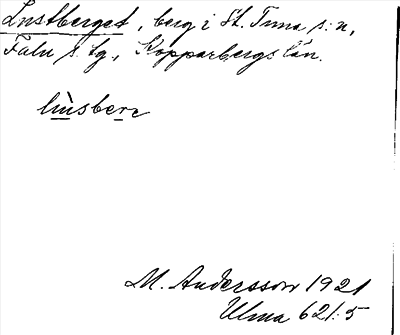 Lustberget, berg i St. Tuna s:n,
Falu s. tg., Kopparbergs län.
lùsberr
M. Andersson 1921
Ulma 621:5